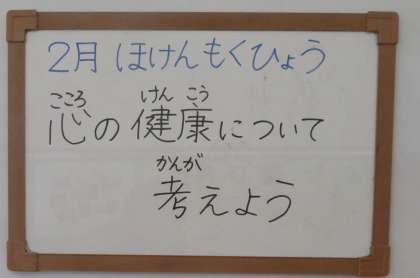 2月 ほけんもくひょう
こころ けん こう
心の健康について
かんが
考えよう